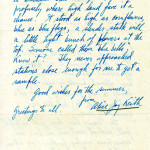 property where high land gave it a
chance. It stood as high as cornflowers,
blue as blue flags, a slender stalk with
a little light bunch of flowers at the
top. Someone called them blue bells.
Know it? They never approached
stations close enough for me to get a
sample.
Good wishes for the summer
from
Greetings to all.